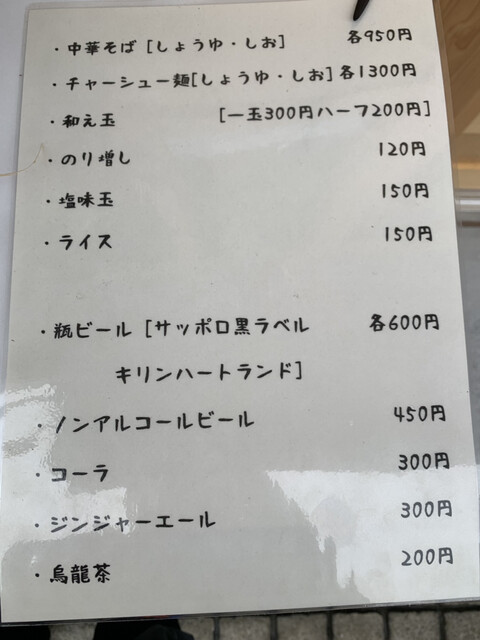 ・中華そば [しょうゆ・しお] 各950円
・チャーシュー麺[しょうゆ・しお] 各1300円
・和え玉 [一玉300円ハーフ200円]
・のり増し 120円
・塩味玉 150円
・ライス 150円
・瓶ビール [サッポロ黒ラベル 各600円
キリンハートランド]
・ノンアルコールビール 450円
・コーラ 300円
・ジンジャーエール 300円
・烏龍茶 200円